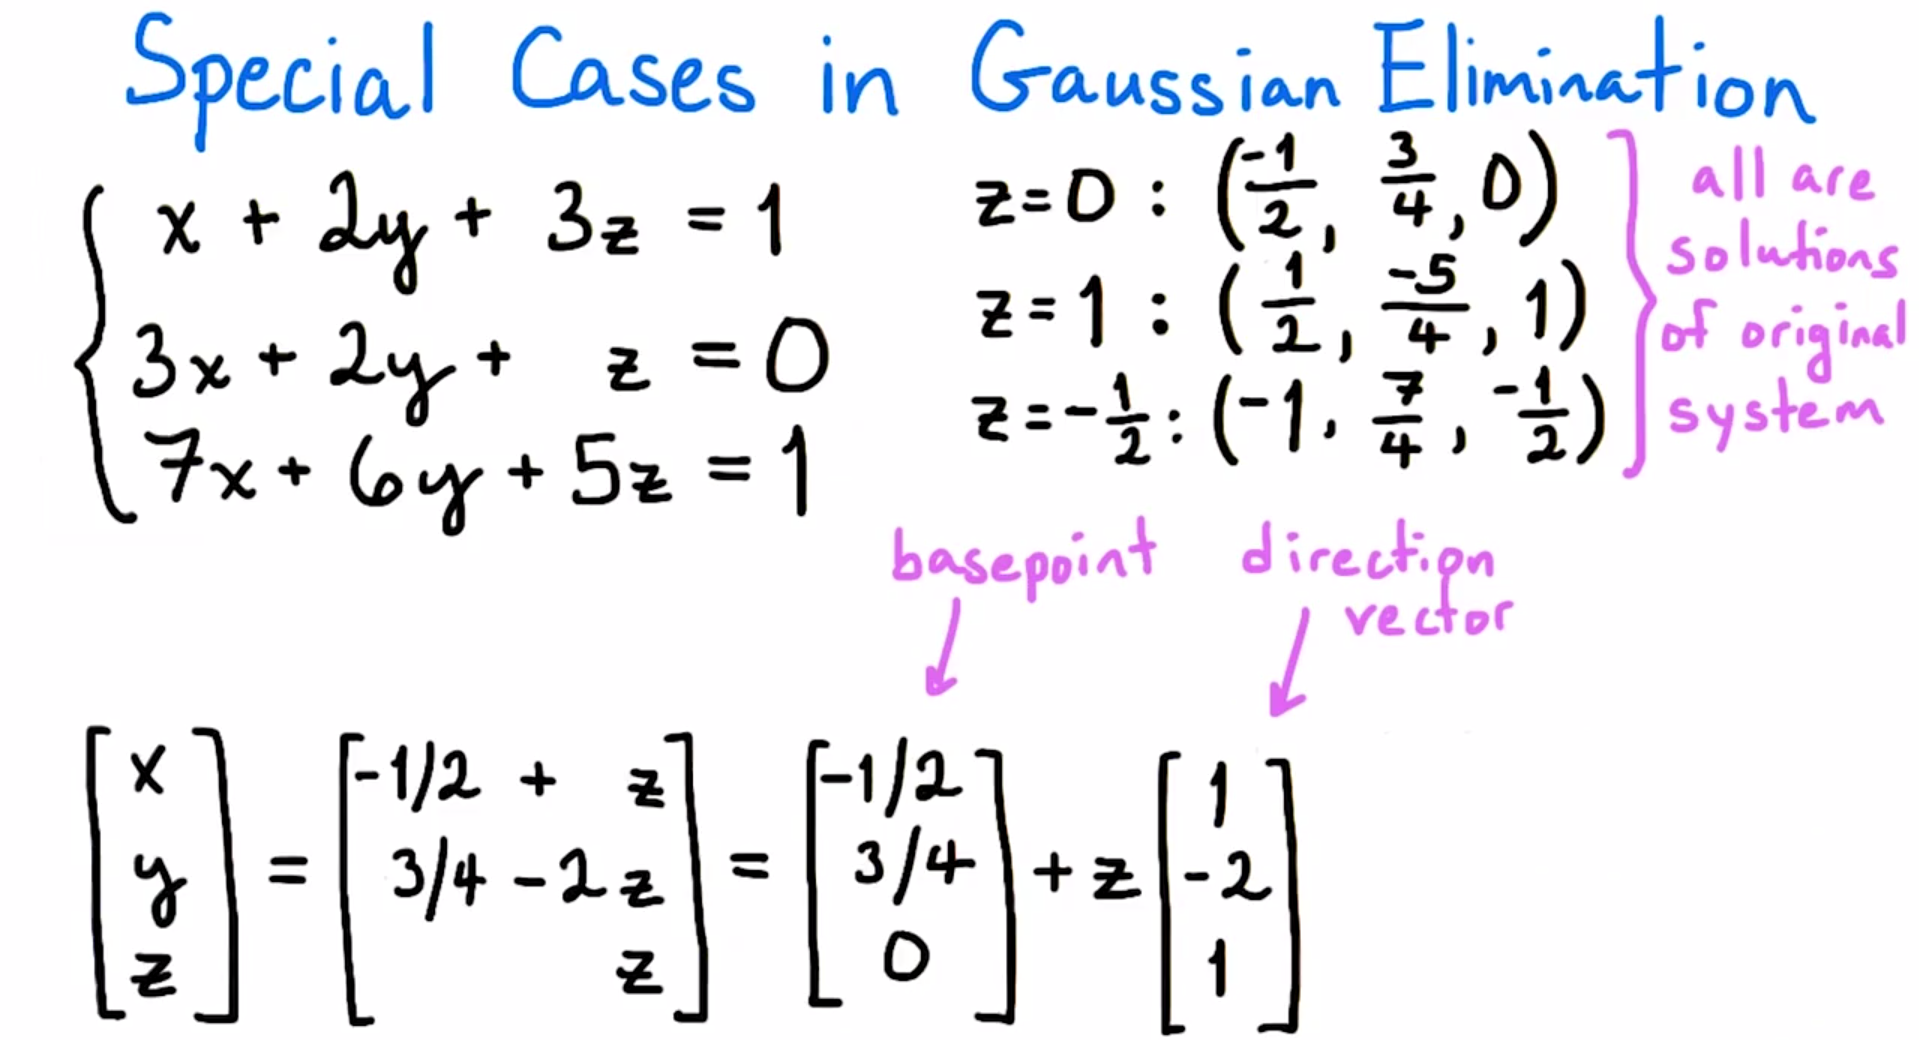 Special Cases in Gaussian Elimination
x + 2y + 3z = 1
3x + 2y + z = 0
7x + 6y + 5z = 1
z=0 : (-1/2, 3/4, 0)
z=1 : (1/2, -5/4, 1)
z=-1/2 : (-1, 7/4, -1/2)
all are
solutions
of original
system
basepoint
direction
vector
[x y z] = [-1/2 + z 3/4 - 2z z] = [-1/2 3/4 0] + z [1 -2 1]